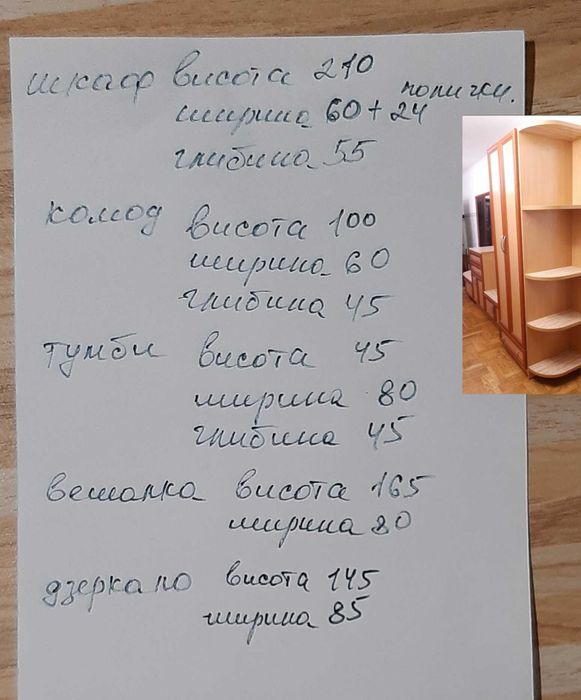 шкаф висота 210
ширина 60 + 24 полички.
глибина 55
комод висота 100
ширина 60
глибина 45
тумби висота 45
ширина 80
глибина 45
вешалка висота 165
ширина 80
дзеркало висота 145
ширина 85